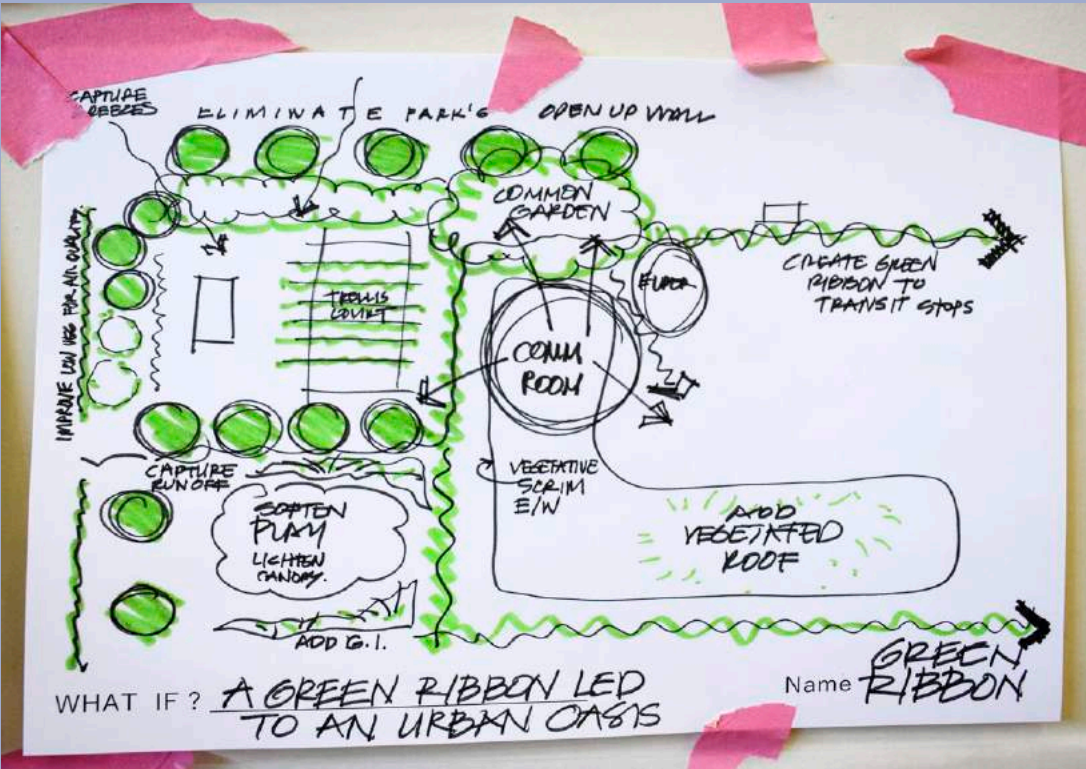 CAPTURE
BREEZES
ELIMINATE PARK'G
OPEN UP WALL
COMMON
GARDEN
IMPROVE LOW VEG FOR AIR QUALITY
TRELLIS
COURT
CREATE GREEN
RIBBON TO
TRANSIT STOPS
COMM
ROOM
CAPTURE
RUNOFF
VEGETATIVE
SCRIM
E/W
SOFTEN
PLAY
LIGHTEN
CANOPY.
ADD
VEGETATED
ROOF
ADD G.I.
WHAT IF? A GREEN RIBBON LED
TO AN URBAN OASIS
Name GREEN
RIBBON